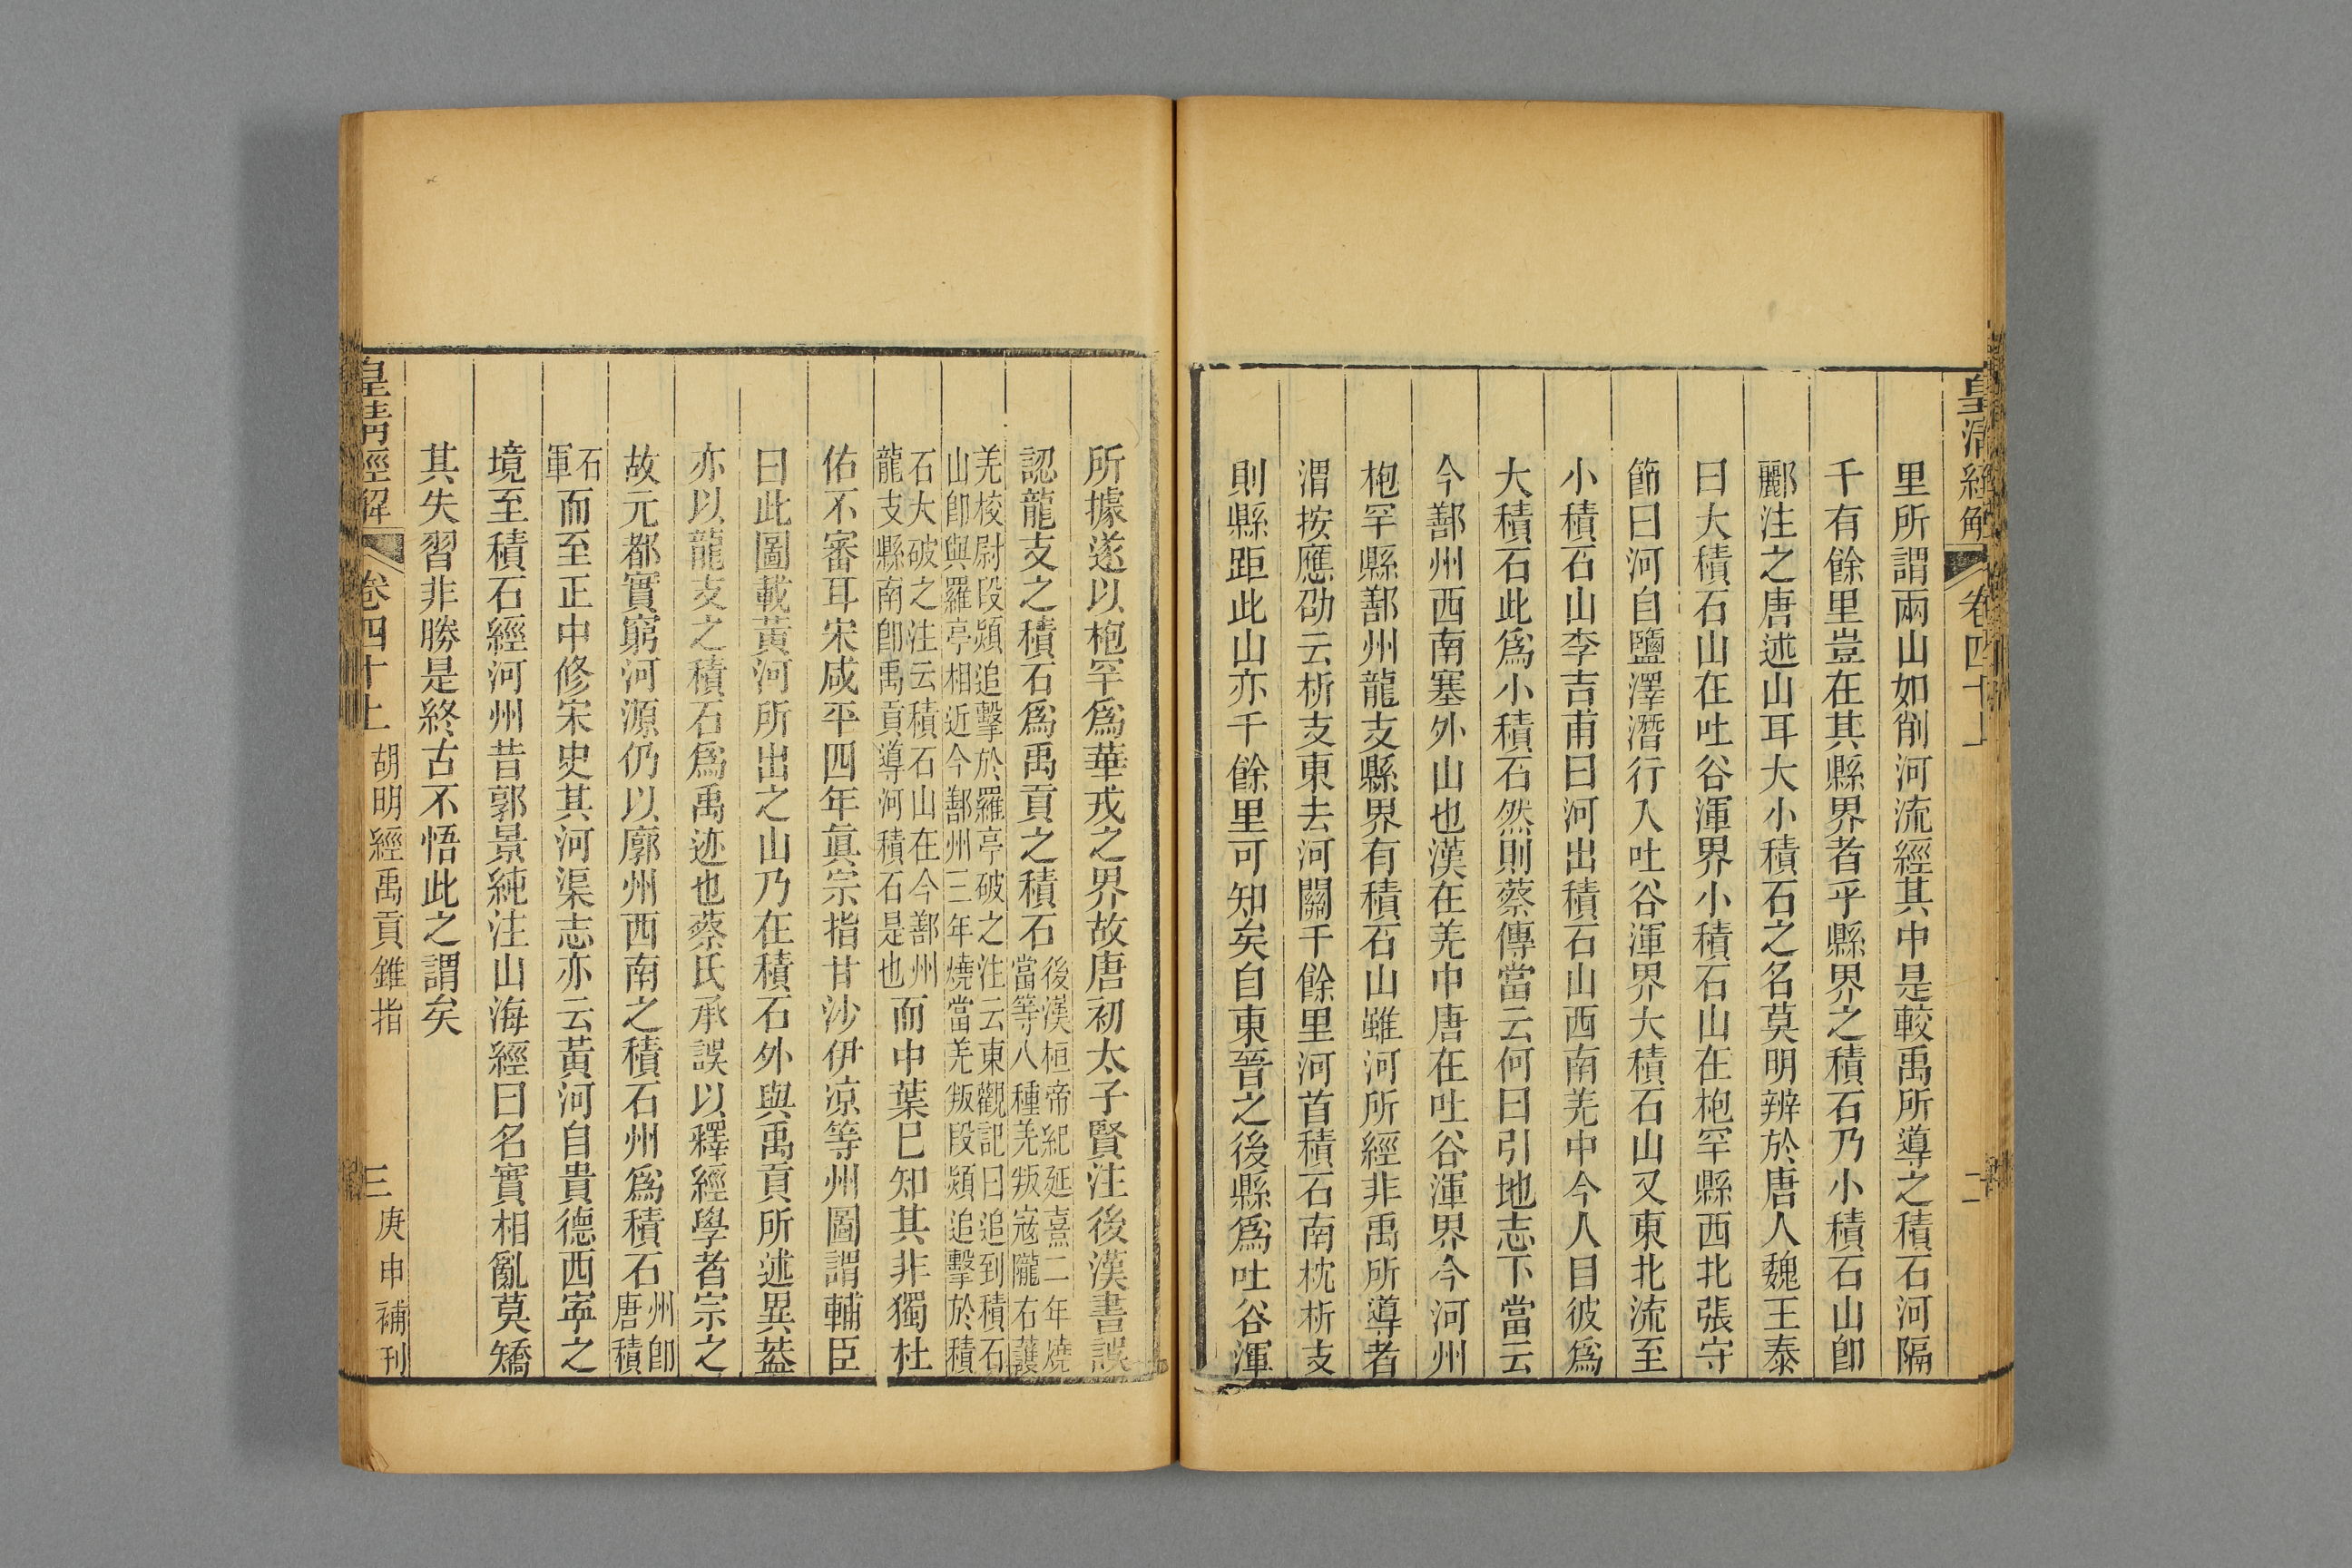 皇清經解 卷四十上 二
里所謂兩山如削河流經其中是較禹所導之積石河隔
千有餘里豈在其縣界者乎縣界之積石乃小積石山卽
酈注之唐述山耳大小積石之名莫明辨於唐人魏王泰
曰大積石山在吐谷渾界小積石山在枹罕縣西北張守
節曰河自鹽澤潛行入吐谷渾界大積石山又東北流至
小積石山李吉甫曰河出積石山西南羌中今人目彼爲
大積石此爲小積石然則蔡傳當云何曰引地志下當云
今鄯州西南塞外山也漢在羌中唐在吐谷渾界今河州
枹罕縣鄯州龍支縣界有積石山雖河所經非禹所導者
渭按應劭云析支東去河關千餘里河首積石南枕析支
則縣距此山亦千餘里可知矣自東晉之後縣爲吐谷渾
所據遂以枹罕爲華戎之界故唐初太子賢注後漢書誤
認龍支之積石爲禹貢之積石後漢桓帝紀延熹二年燒當等八種羌叛寇隴右護
羌校尉段熲追擊於羅亭破之注云東觀記曰追到積石山卽與羅亭相近今鄯州三年燒當羌叛段熲追擊於積
石大破之注云積石山在今鄯州龍支縣南卽禹貢導河積石是也而中葉巳知其非獨杜
佑不審耳宋咸平四年眞宗指甘沙伊凉等州圖謂輔臣
曰此圖載黃河所出之山乃在積石外與禹貢所述異葢
亦以龍支之積石爲禹迹也蔡氏承誤以釋經學者宗之
故元都實窮河源仍以廓州西南之積石州爲積石州卽唐積
石軍而至正中修宋史其河渠志亦云黃河自貴德西寧之
境至積石經河州昔郭景純注山海經曰名實相亂莫矯
其失習非勝是終古不悟此之謂矣
皇清經解 卷四十上 胡明經禹貢錐指 三 庚申補刊